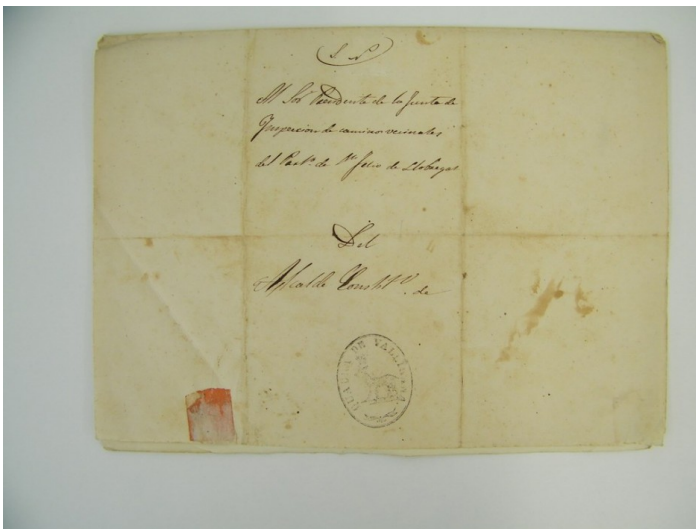 S. N.
Al Sor. Presidente de la Junta de
Ynspeccion de caminos vecinales
del Part.º de Sn. Feliu de Llobregat
Del
Alcalde Constl.
de
DE VALLIRANA